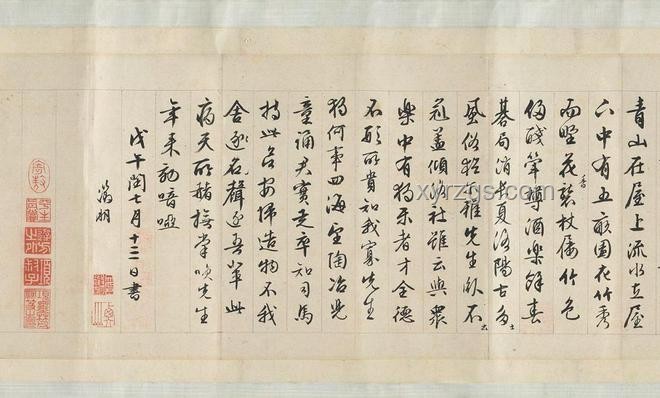 青山在屋上流水在屋
下中有五畝園花竹秀
而野花香襲杖屨竹色
侵醆斝樽酒樂餘春
棊局消長夏洛陽古多士
風俗猶爾雅先生臥不出
冠蓋傾洛社雖云與衆
樂中有獨樂者才全德
不形所貴知我寡先生
獨何事四海望陶冶兒
童誦君實走卒知司馬
持此欲安歸造物不我
舍名聲逐吾輩此
病天所赭撫掌笑先生
年來效喑啞
戊午閏七月十三日書
徵明
xyrzgs.com